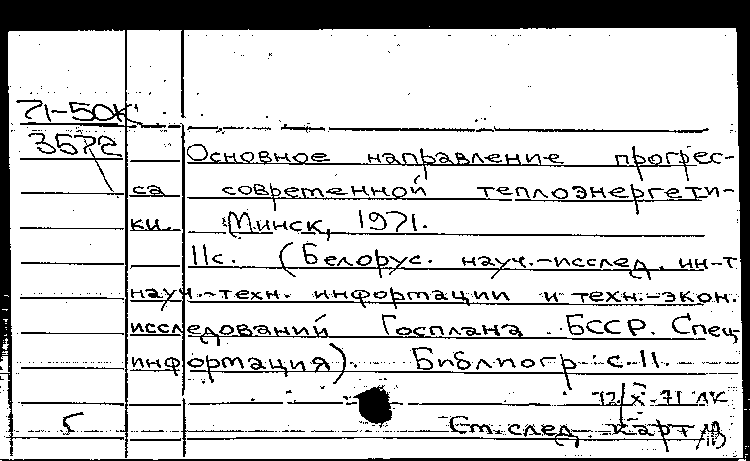 71-50К
3572
Основное направление прогрес-
са современной теплоэнергети-
ки. Минск, 1971.
11с. (Белорус. науч.-исслед. ин-т
науч.-техн. информации и техн.-экон.
исследований Госплана БССР. Спец.
информация). Библиогр: с.11.
12/X-71 ЛК
5 См. след. карт